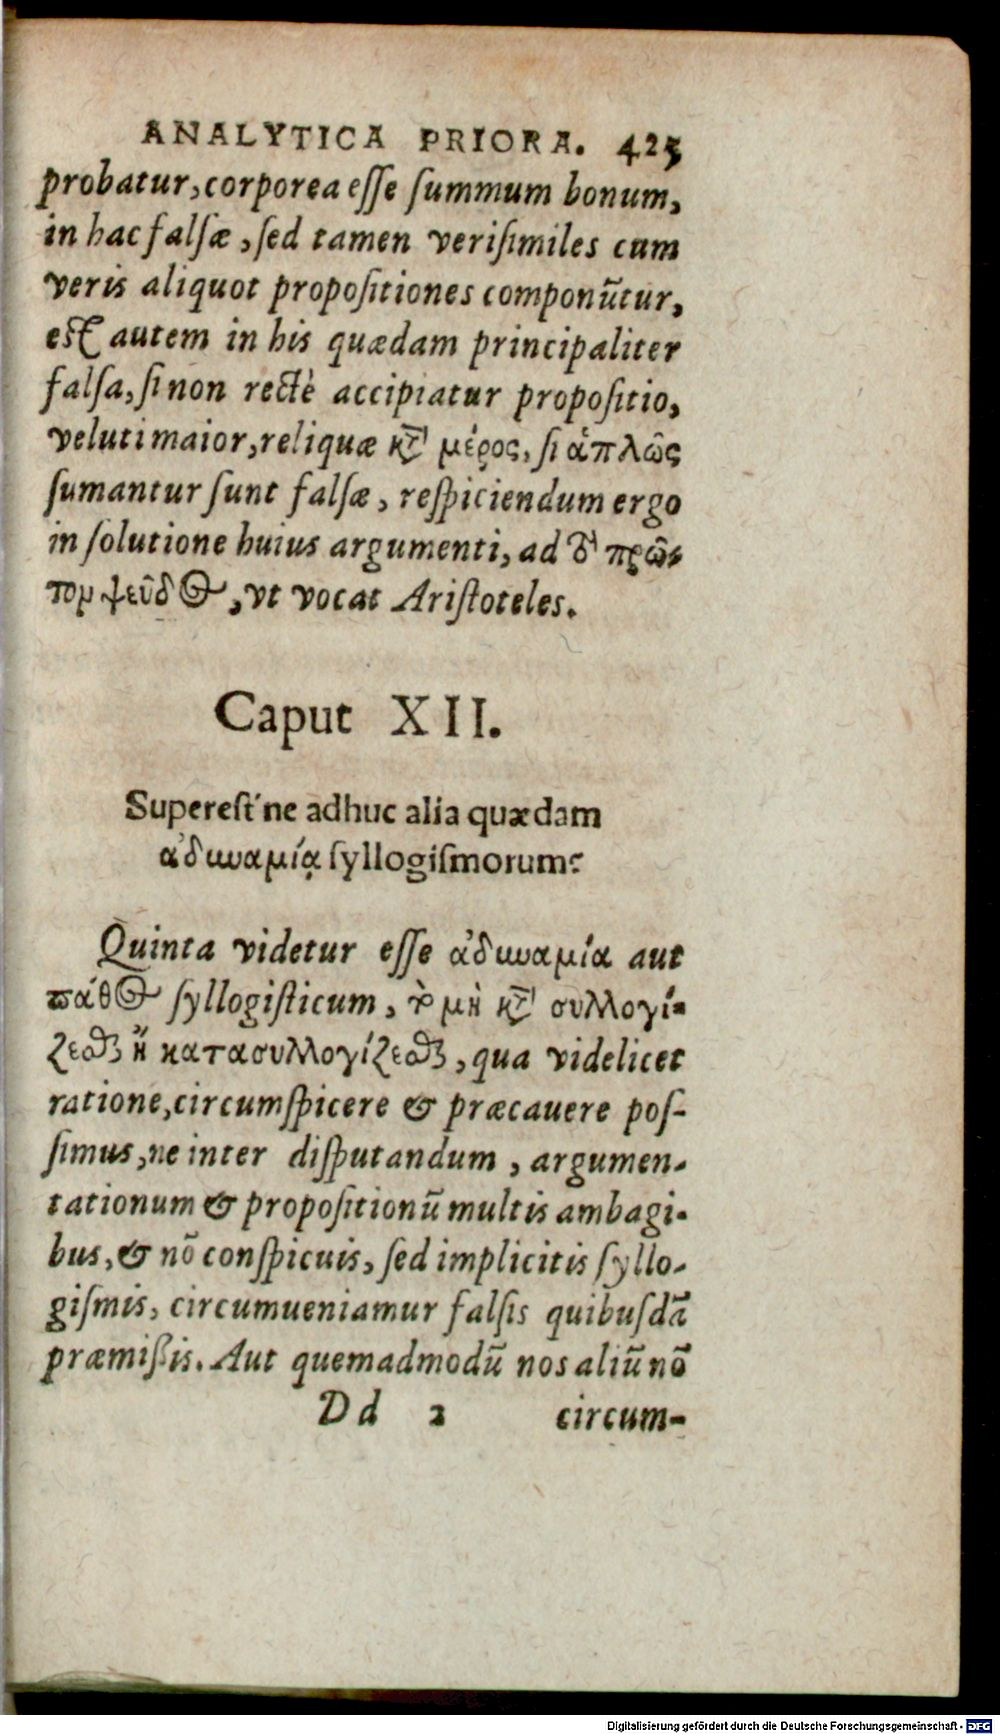 ANALYTICA PRIORA. 425
probatur, corporea esse summum bonum,
in hac falsæ, sed tamen verisimiles cum
veris aliquot propositiones componũtur,
est autem in his quædam principaliter
falsa, si non rectè accipiatur propositio,
veluti maior, reliquæ κτ̀ μέρος, si ἁπλῶς
sumantur sunt falsæ, respiciendum ergo
in solutione huius argumenti, ad τὸ πρῶ-
τον ψεῦδος, vt vocat Aristoteles.
Caput XII.
Superest'ne adhuc alia quædam
ἀδυναμία syllogismorum?
Quinta videtur esse ἀδυναμία aut
πάθος syllogisticum, τὸ μὴ κτ̀ συλλογί-
ζεσθαι ἢ κατασυλλογίζεσθαι, qua videlicet
ratione, circumspicere & præcauere pos-
simus, ne inter disputandum, argumen-
tationum & propositionũ multis ambagi-
bus, & nõ conspicuis, sed implicitis syllo-
gismis, circumueniamur falsis quibusdã
præmißis. Aut quemadmodũ nos aliũ nõ
Dd 2 circum-
Digitalisierung gefördert durch die Deutsche Forschungsgemeinschaft - DFG